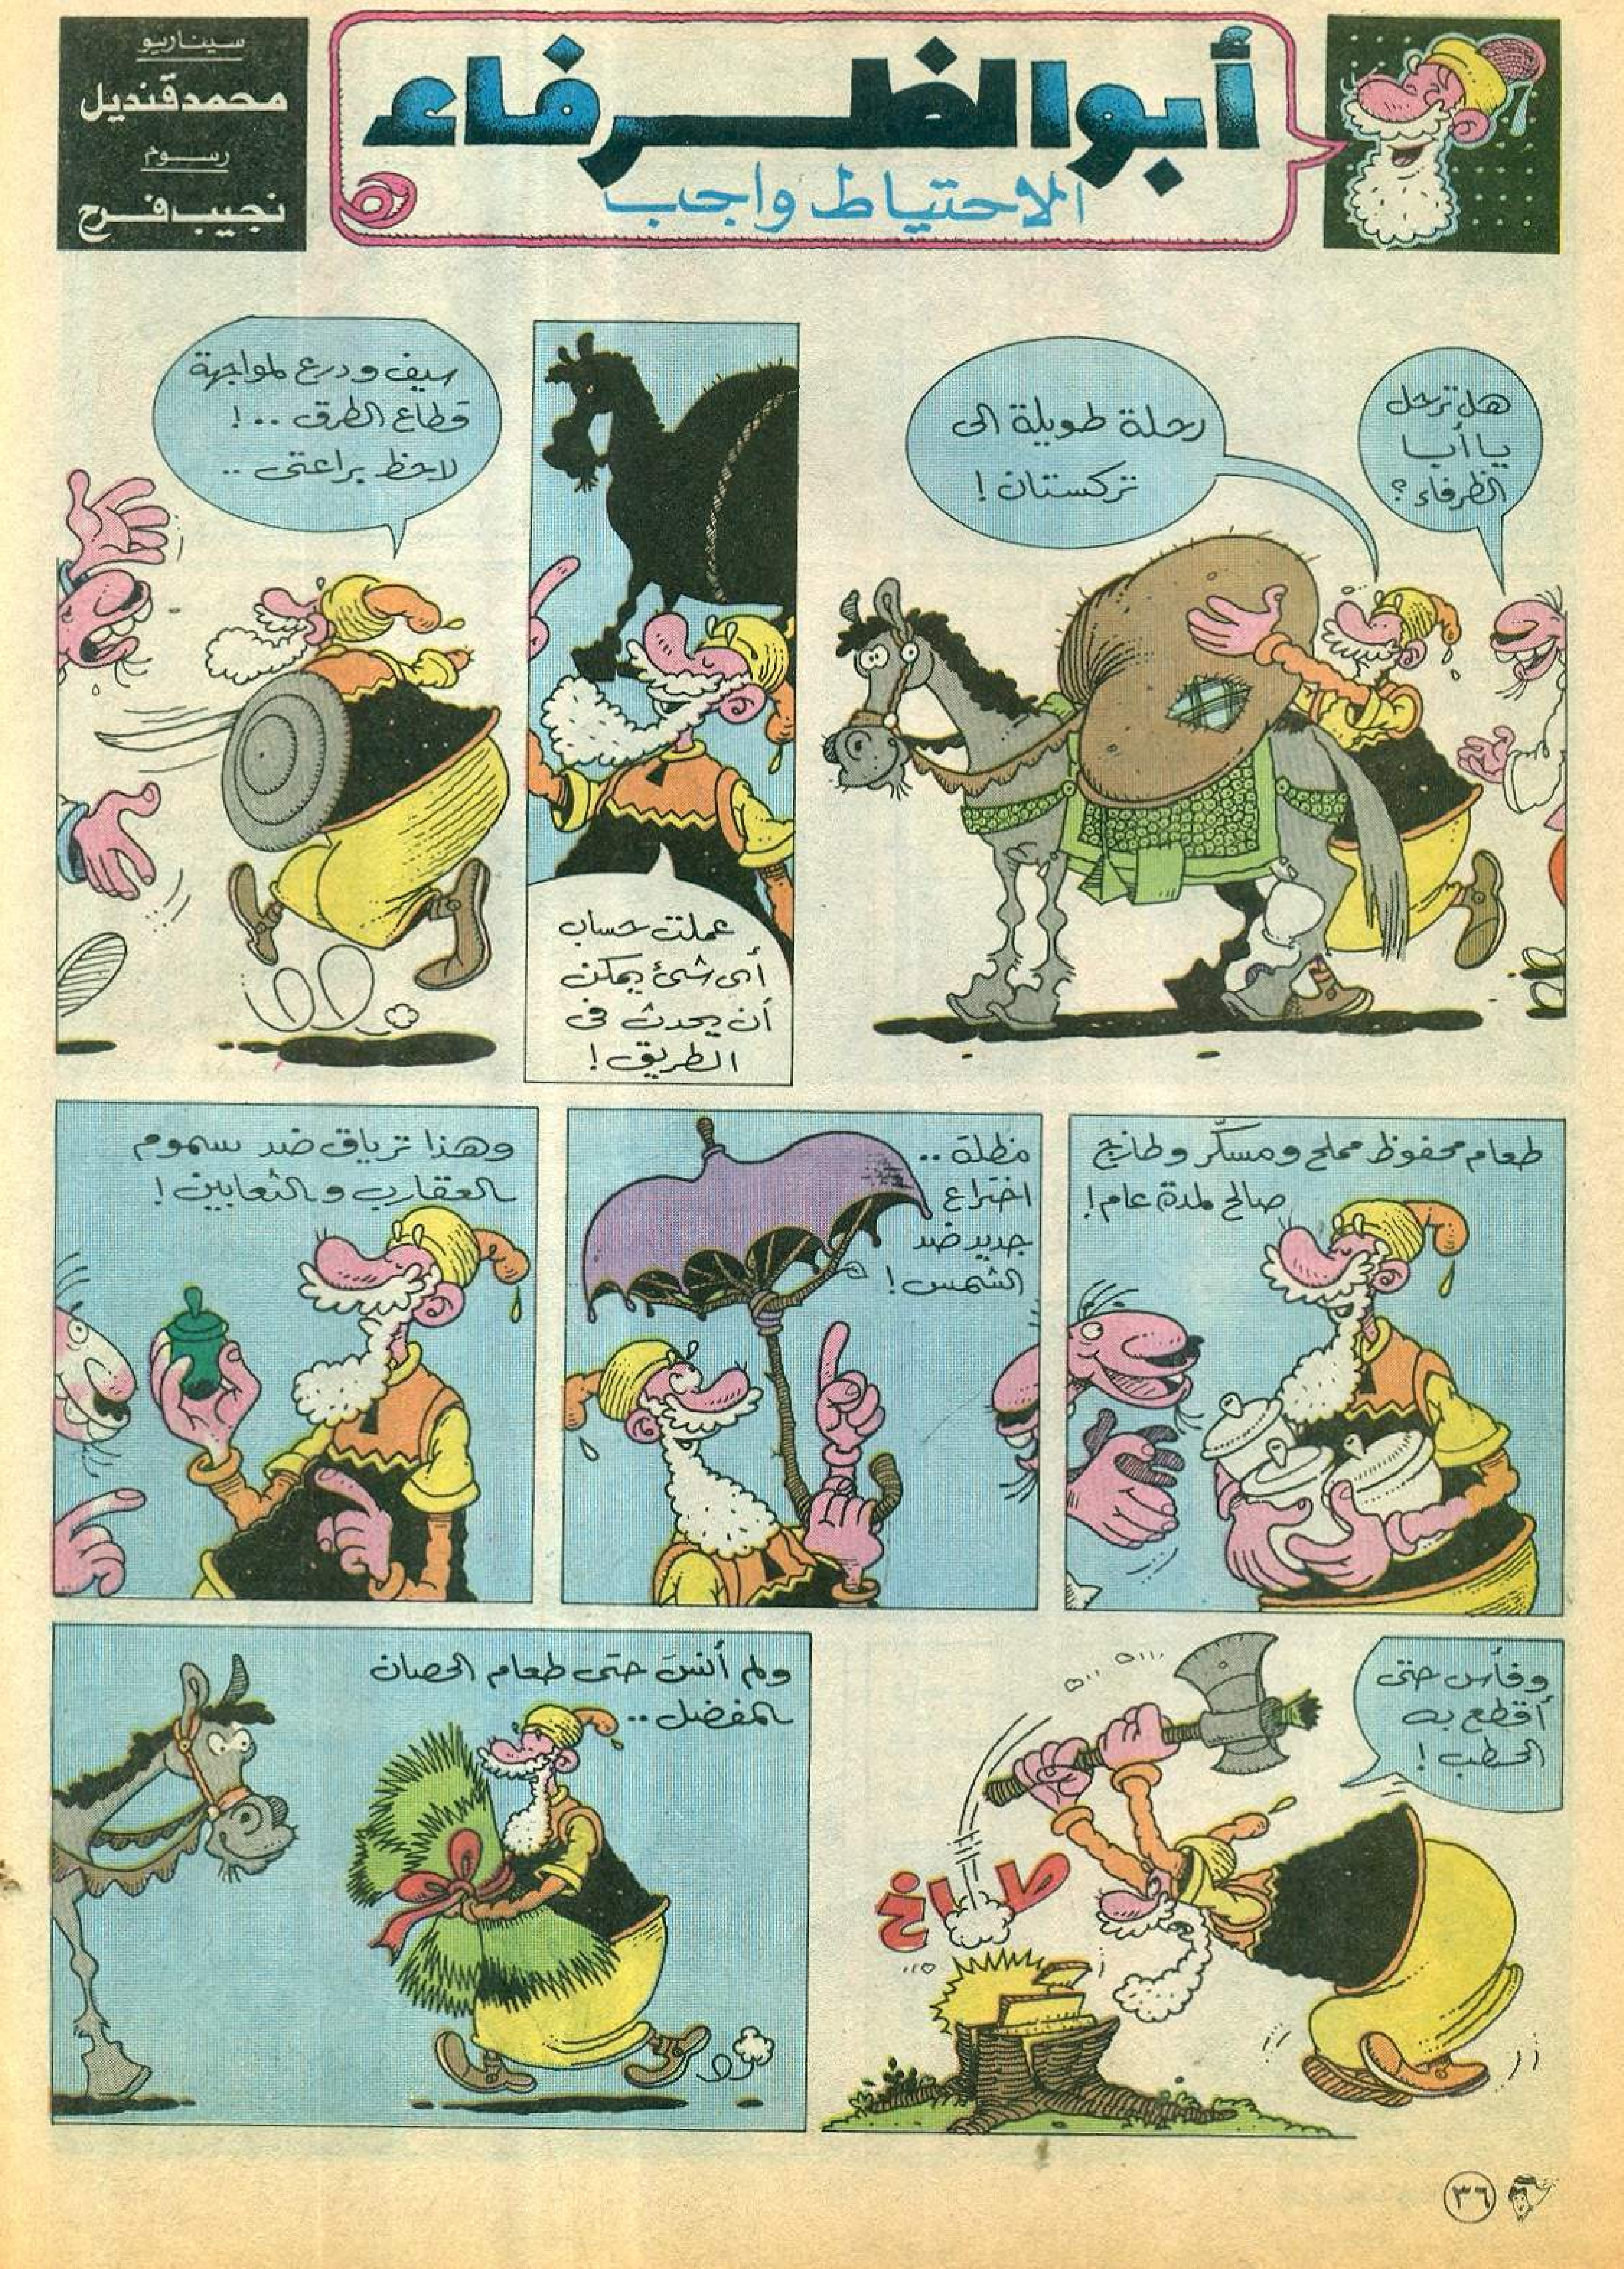 سيناريو
محمد قنديل
رسوم
نجيب فرج
أبو الظرفاء
الاحتياط واجب
هل ترحل
يا أبا
الظرفاء؟
رحلة طويلة الى
تركستان!
عملت حساب
أى شئ يمكن
أن يحدث فى
الطريق!
سيف ودرع لمواجهة
قطاع الطرق ..!
لاحظ براعتى ..
طعام محفوظ مملح ومسكّر وطازج
صالح لمدة عام!
مظلة ..
اختراع
جديد ضد
الشمس!
وهذا ترياق ضد سموم
العقارب والثعابين!
وفأس حتى
أقطع به
الحطب!
طاخ
ولم أنسَ حتى طعام الحصان
المفضل ..
٣٦